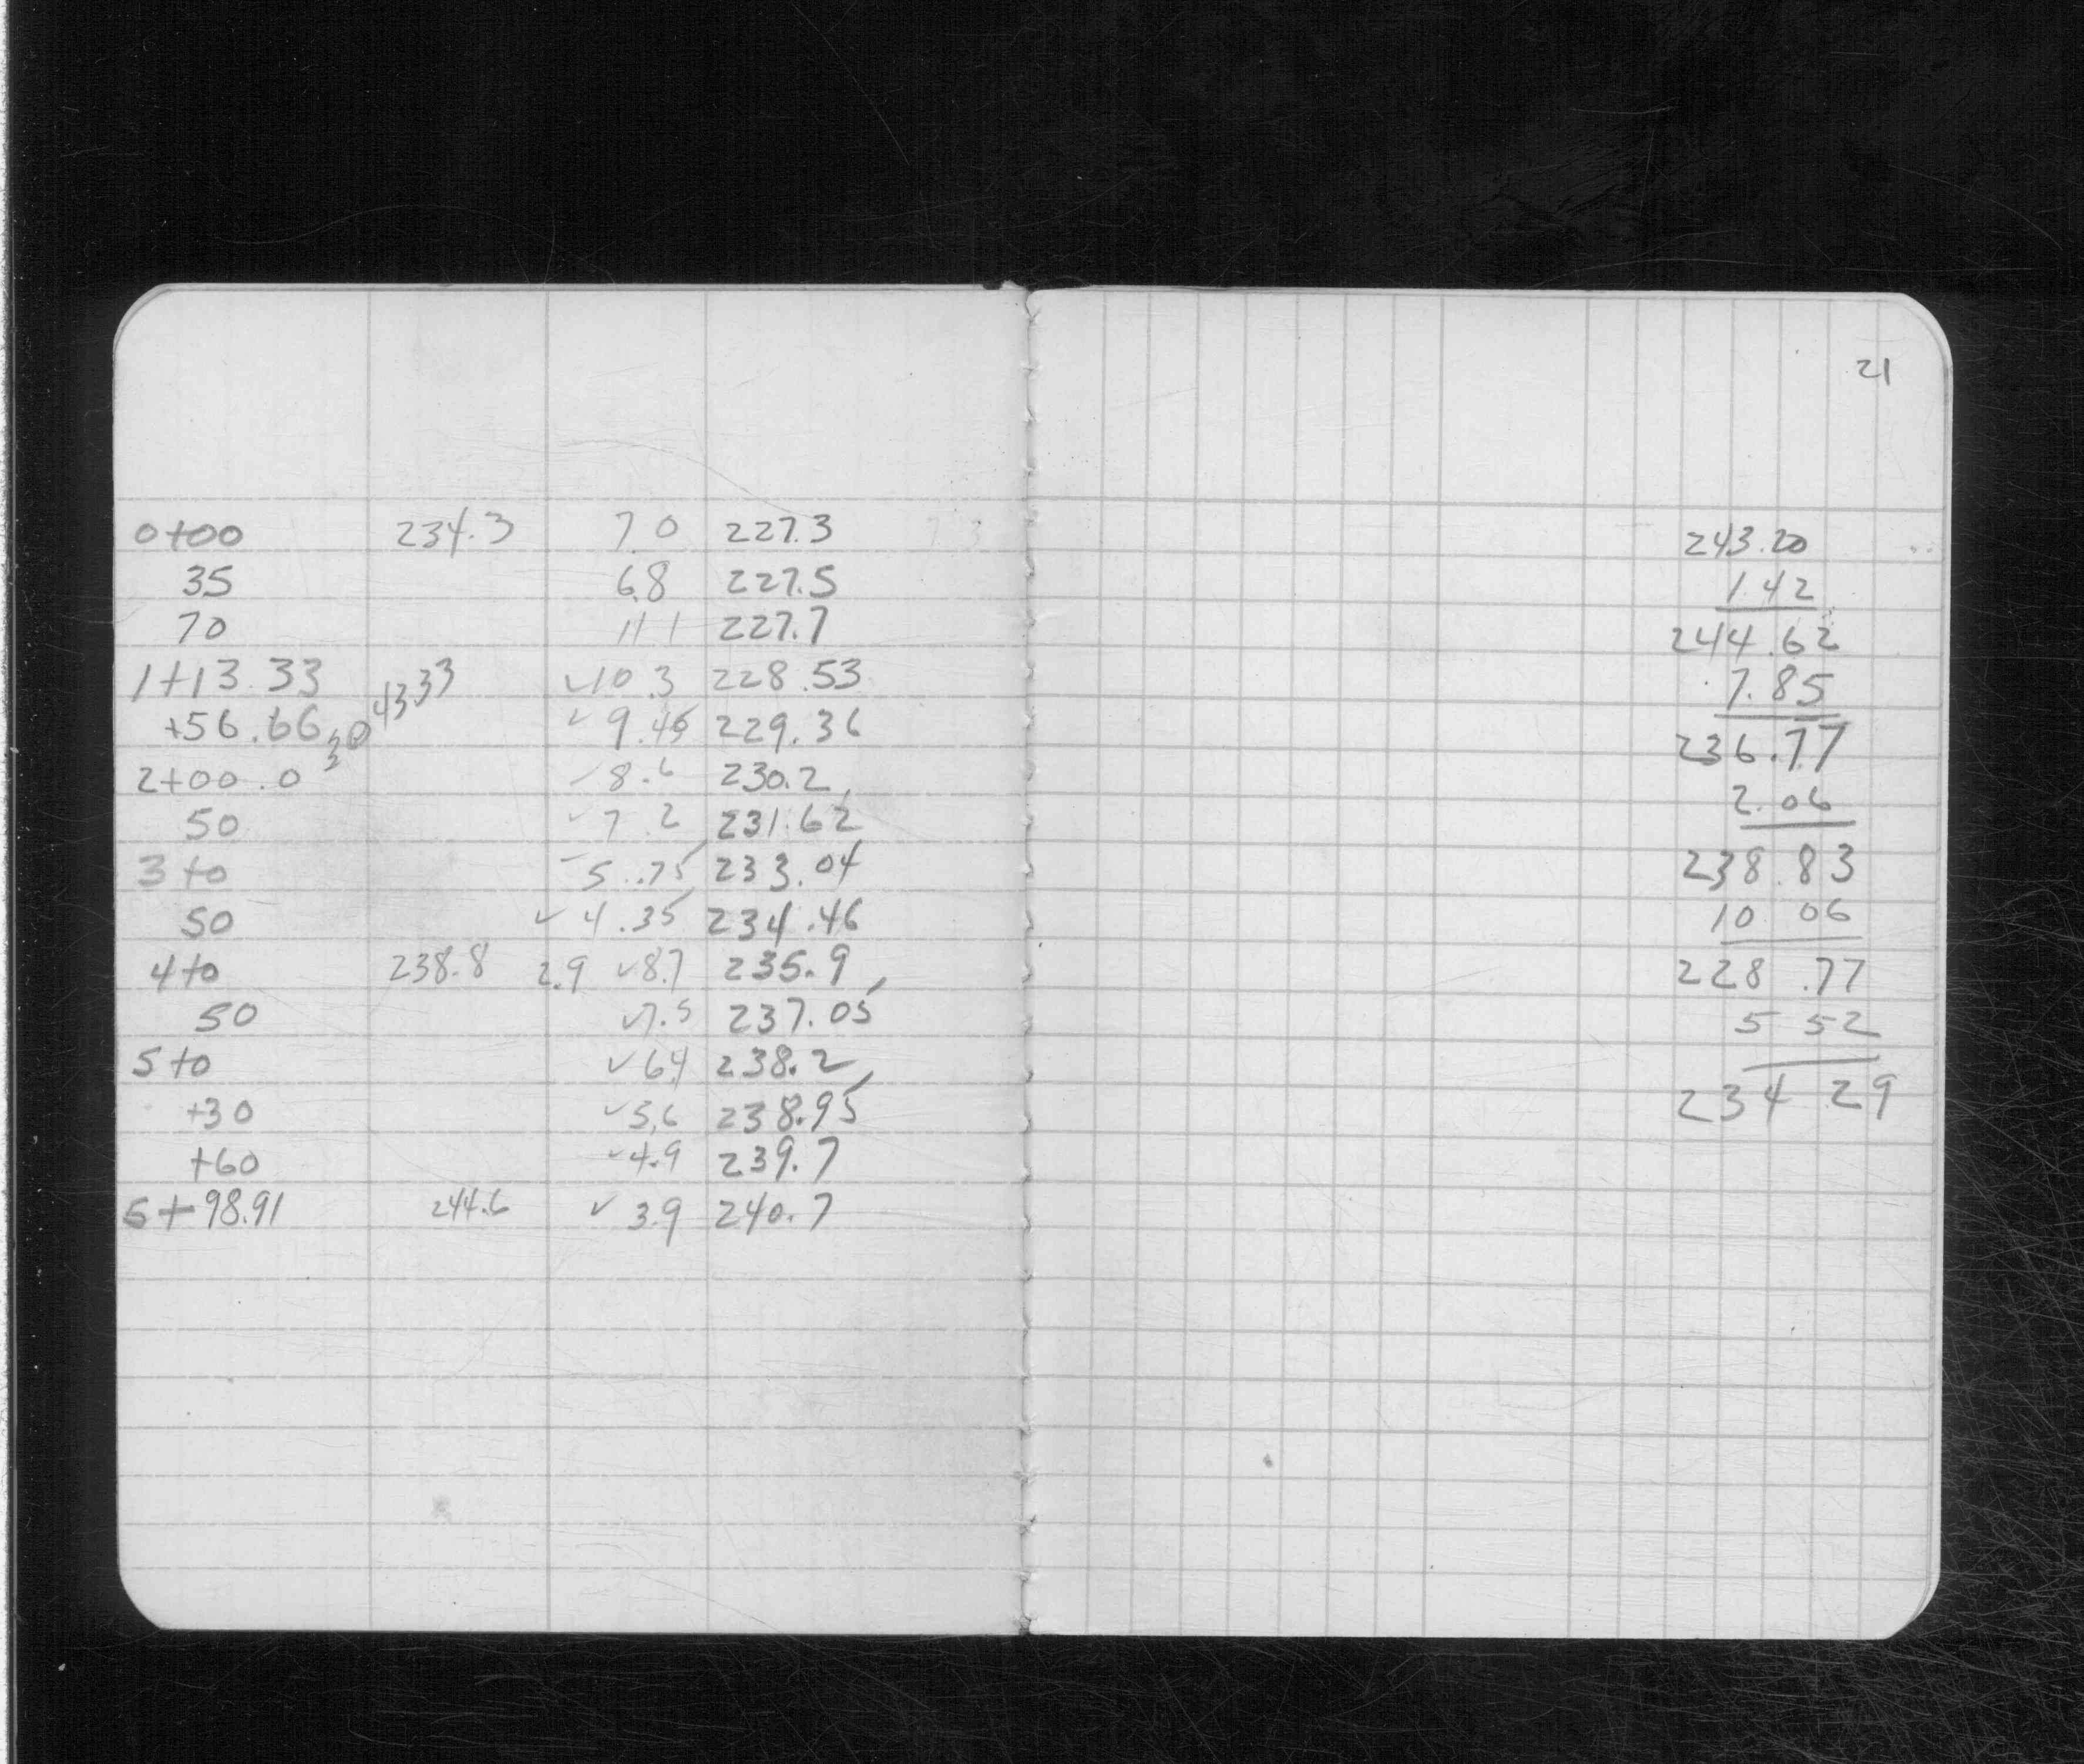 0+00 234.3 7.0 227.3 7.3
35 6.8 227.5
70 11.1 227.7
1+13.33 ✓10.3 228.53
+56.66 30 43 33 ✓9.45 229.36
2+00.0 ✓8.6 230.2
50 ✓7.2 231.62
3+0 5.75 233.04
50 ✓4.35 234.46
4+0 238.8 2.9 ✓8.7 235.9
50 ✓7.5 237.05
5+0 ✓6.4 238.2
+30 ✓5.6 238.95
+60 ✓4.9 239.7
5+98.91 244.6 ✓3.9 240.7
21
243.20
1.42
244.62
7.85
236.77
2.06
238.83
10 06
228.77
5 52
234 29